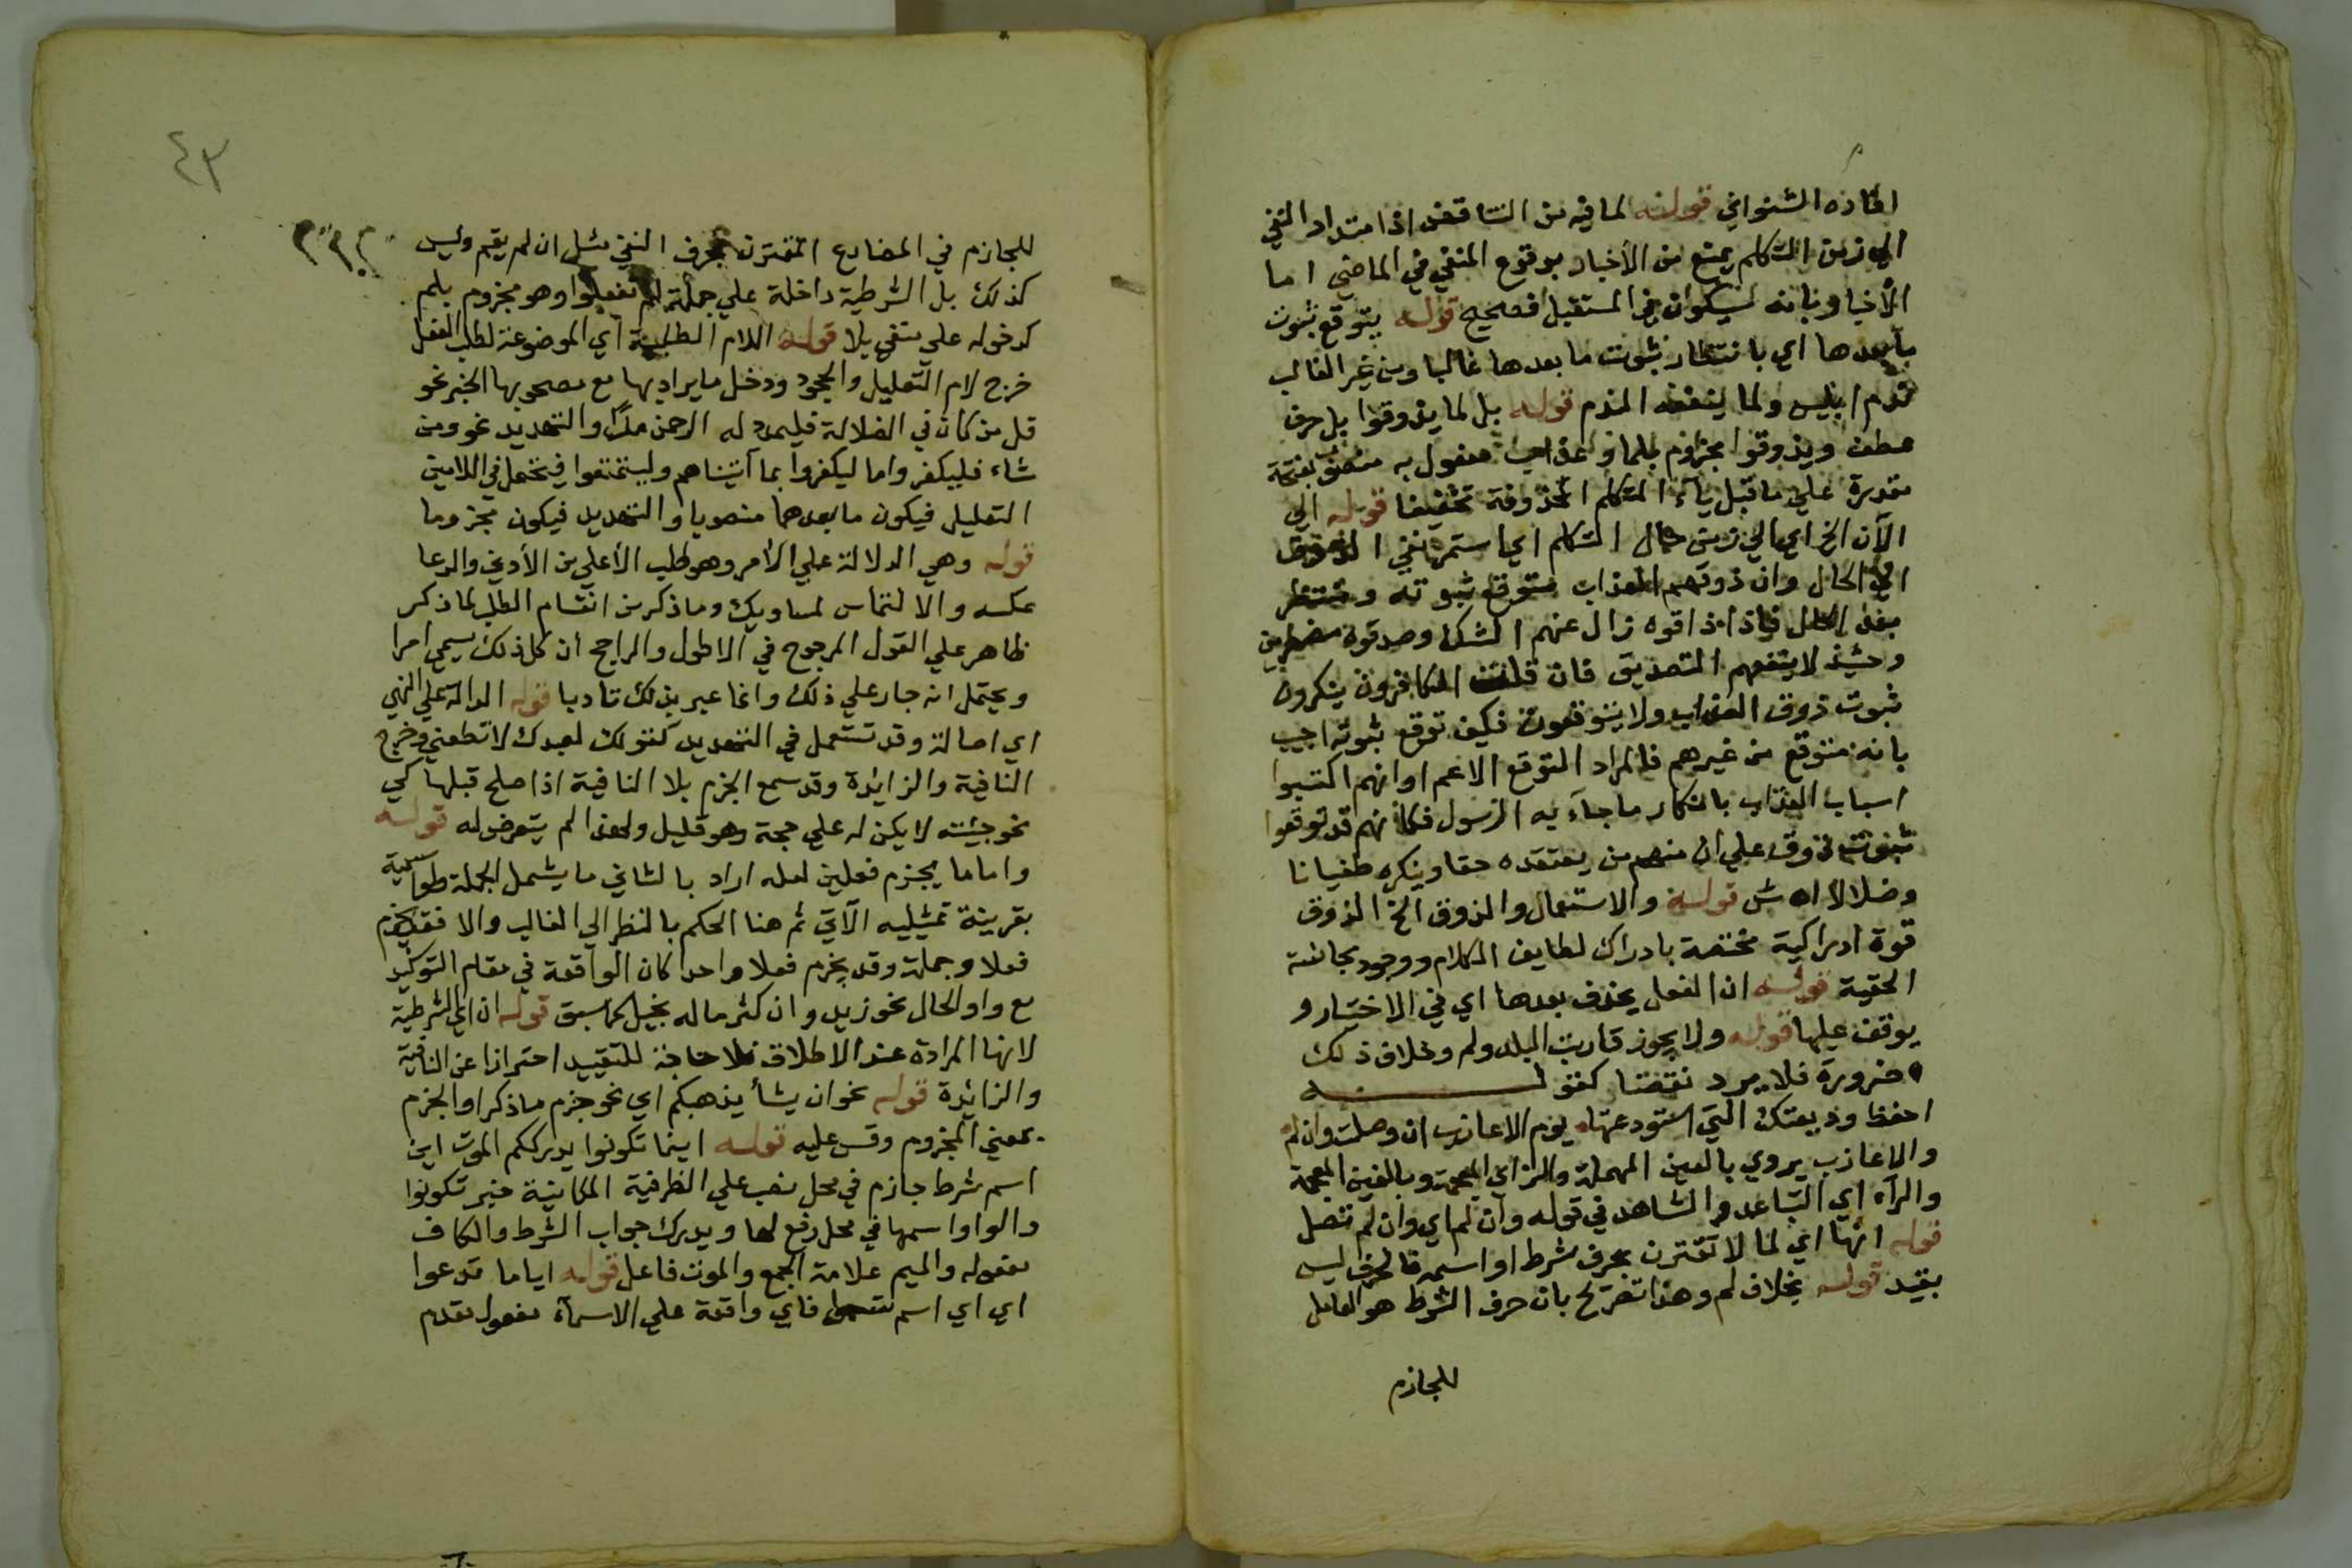 افاده الشنواني قوله لما فيه من التناقض اذ امتداد النفي
الي زمن التكلم يمنع من الأخبار بوقوع المنفي في الماضي اما
الأخبار بانه سيكون في المستقبل فصحيح قوله يتوقع ثبوت
ما بعدها اي بانتظار ثبوت ما بعدها غالبا ومن غير الغالب
ندم ابليس ولما ينفعه الندم قوله بل لما يذوقوا بل حرف
عطف ويذوقوا مجزوم بلما وعذاب مفعول به منصوب بفتحة
مقدرة علي ما قبل ياء المتكلم المحذوفة تخفيفا قوله الي
الآن الخ اي الي زمن حال التكلم اي استمر نفي الذوق
الي الحال وان ذوقهم العذاب متوقع ثبوته ومنتظر
بعد الحال فاذا ذاقوه زال عنهم الشك وصدقوه مضطرين
وحينئذ لا ينفعهم التصديق فان قلت الكافرون ينكرون
ثبوت ذوق العذاب ولا يتوقعونه فكيف توقع ثبوته اجيب
بانه متوقع من غيرهم فالمراد التوقع الاعم او انهم اكتسبوا
اسباب العذاب بانكار ما جاء به الرسول فكانهم قد توقعوا
ثبوت ذوقه علي ان منهم من يعتقده حقا وينكره طغيانا
وضلالا اه ش قوله والاستعمال والذوق الخ الذوق
قوة ادراكية مختصة بادراك لطايف الكلام ووجوه محاسنه
الخفية قوله ان الفعل يحذف بعدها اي في الاختيار و
يوقف عليها قوله ولا يجوز قاربت البلد ولم وخلاف ذلك
ضرورة فلا يرد نقضا كقوله
احفظ وديعتك التي استودعتها يوم الاعازب ان وصلت وان لم
والاعازب يروي بالعين المهملة والزاي المعجمة وبالغين المعجمة
والراء اي التباعد والشاهد في قوله وان لم اي وان لم تصل
قوله انها اي لما لا تقترن بحرف شرط او اسمه فالحرف ليس
بقيد قوله بخلاف لم وهذا تصريح بان حرف الشرط هو العامل
للجازم
٤٣
للجازم في المضارع المقترن بحرف النفي مثل ان لم يقم وليس
كذلك بل الشرطية داخلة علي جملة لم تفعلوا وهو مجزوم بلم
كدخوله علي منفي بلا قوله اللام الطلبية اي الموضوعة لطلب الفعل
خرج لام التعليل والجحود ودخل ما يراد بها مع مصحوبها الخبر نحو
قل من كان في الضلالة فليمدد له الرحمن مدا والتهديد نحو ومن
شاء فليكفر واما ليكفروا بما آتيناهم وليتمتعوا فيحتمل في اللامين
التعليل فيكون ما بعدهما منصوبا والتهديد فيكون مجزوما
قوله وهي الدلالة علي الأمر وهو طلب الأعلي من الأدني والدعا
عكسه والالتماس لمساويك وما ذكر من انقسام الطلب لما ذكر
ظاهر علي القول المرجوح في الاطول والراجح أن كل ذلك يسمي امرا
ويحتمل انه جار علي ذلك وانما عبر بذلك تادبا قوله الدالة علي النهي
اي اصالة وقد تستعمل في التهديد كقولك لعبدك لا تطعني وخرج
النافية والزايدة وقد سمع الجزم بلا النافية اذا صلح قبلها كي
نحو جئته لا يكن له علي حجة وهو قليل ولهذا لم يتعرض له قوله
واما ما يجزم فعلين لعله اراد بالثاني ما يشمل الجملة
بقرينة تمثيله الآتي ثم هنا الحكم بالنظر الي الغالب والا فقد يجزم
فعلا وجملة وقد يجزم فعلا واحدا كان الواقعة في مقام التوكيد
مع واو الحال نحو زيد وان كثر ماله بخيل كما سبق قوله ان اي الشرطية
لانها المرادة عند الاطلاق فلا حاجة للتقييد احترازا عن النافية
والزائدة قوله نحو ان يشأ يذهبكم اي نحو جزم ما ذكر او الجزم
بمعني المجزوم وقس عليه قوله اينما تكونوا يدرككم الموت اين
اسم شرط جازم في محل نصب علي الظرفية المكانية خبر تكونوا
والواو اسمها في محل رفع لها ويدرك جواب الشرط والكاف
مفعوله والميم علامة الجمع والموت فاعل قوله اياما تدعوا
اي اي اسم فاي واقعة علي الاسماء مفعول مقدم